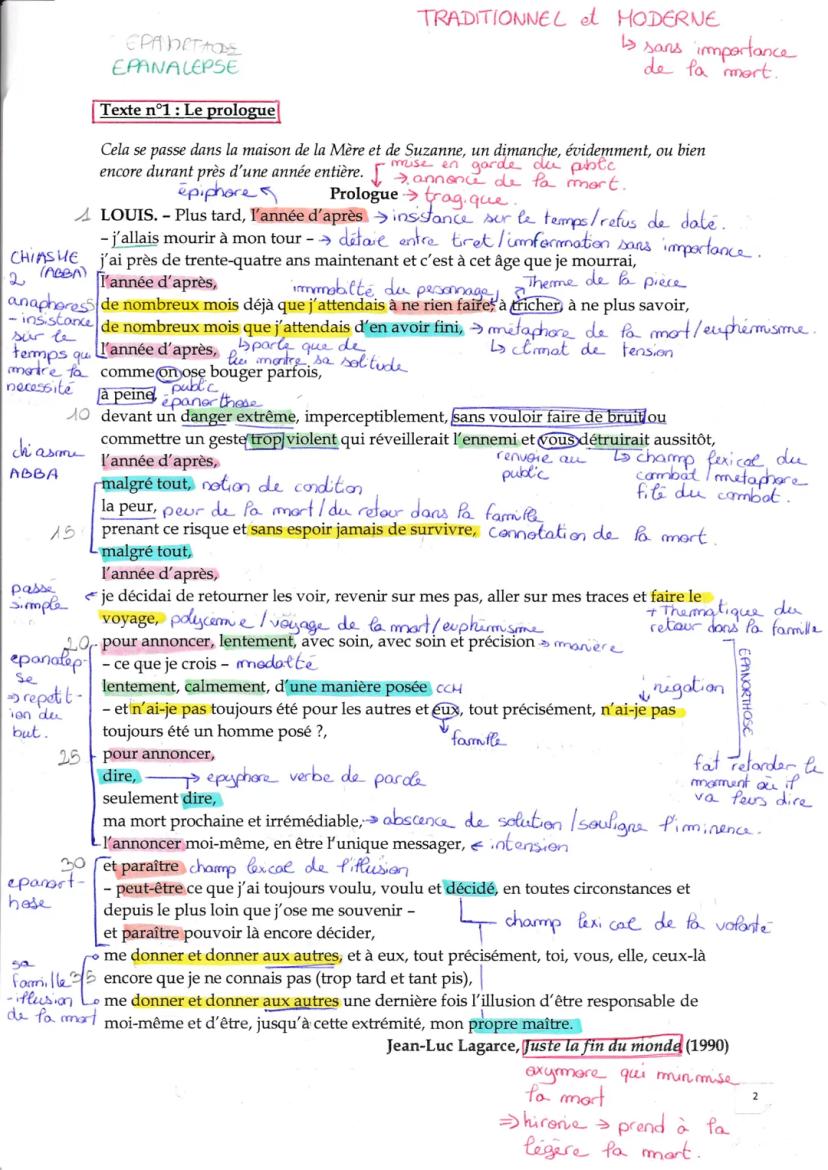 TRADITIONNEL et MODERNE
↳ sans importance
de la mort.
EPANALEPSE
Texte n°1 : Le prologue
Cela se passe dans la maison de la Mère et de Suzanne, un dimanche, évidemment, ou bien
encore durant près d'une année entière.
mise en garde du public
→ annonce de la mort.
épiphore
Prologue → tragique.
1 LOUIS. – Plus tard, l'année d'après → insistance sur le temps/refus de daté.
– j'allais mourir à mon tour – → détaie entre tiret/imformation sans importance.
j'ai près de trente-quatre ans maintenant et c'est à cet âge que je mourrai,
CHIASME
(ABBA)
l'année d'après,
immobilté du personnage
Theme de la pièce
2 anaphores
5 de nombreux mois déjà que j'attendais à ne rien faire, à tricher, à ne plus savoir,
- insistance
sur le
temps qui
montre la
necessité
de nombreux mois que j'attendais d'en avoir fini, → métaphore de la mort/euphémisme.
l'année d'après, ↳ parle que de
lui montre sa solitude
↳ climat de tension
comme on ose bouger parfois,
public
à peine, épanorthose
10 devant un danger extrême, imperceptiblement, sans vouloir faire de bruit ou
commettre un geste trop violent qui réveillerait l'ennemi et vous détruirait aussitôt,
chiasme
ABBA
l'année d'après,
renvoie au
public
↳ champ lexical du
combat/métaphore
filé du combat.
malgré tout, notion de condition
la peur, peur de la mort/du retour dans la famille
15 prenant ce risque et sans espoir jamais de survivre, connotation de la mort.
malgré tout,
l'année d'après,
passé
simple
je décidai de retourner les voir, revenir sur mes pas, aller sur mes traces et faire le
voyage, polycemie/voyage de la mort/euphimisme
+ Thematique du
retour dans la famille
20 pour annoncer, lentement, avec soin, avec soin et précision → manière
epanalep-
se
⇒ repetit-
ion du
but.
– ce que je crois – modalté
lentement, calmement, d'une manière posée CCM
négation
EPANORTHOSE
– et n'ai-je pas toujours été pour les autres et eux, tout précisément, n'ai-je pas
toujours été un homme posé ?,
famille
25 pour annoncer,
fat retarder le
moment où il
va leurs dire
dire, → epyphore verbe de parole
seulement dire,
ma mort prochaine et irrémédiable, → abscence de solution/souligne l'iminence.
l'annoncer moi-même, en être l'unique messager, ← intension
30 et paraître champ lexcal de l'illusion
epanort-
hose
– peut-être ce que j'ai toujours voulu, voulu et décidé, en toutes circonstances et
depuis le plus loin que j'ose me souvenir –
champ lexical de la volonté
et paraître pouvoir là encore décider,
me donner et donner aux autres, et à eux, tout précisément, toi, vous, elle, ceux-là
sa
famille
-illusion
de la mort
35 encore que je ne connais pas (trop tard et tant pis),
me donner et donner aux autres une dernière fois l'illusion d'être responsable de
moi-même et d'être, jusqu'à cette extrémité, mon propre maître.
Jean-Luc Lagarce, Juste la fin du monde (1990)
oxymore qui minmise
la mort
⇒ hironie → prend à la
légère la mort.
2